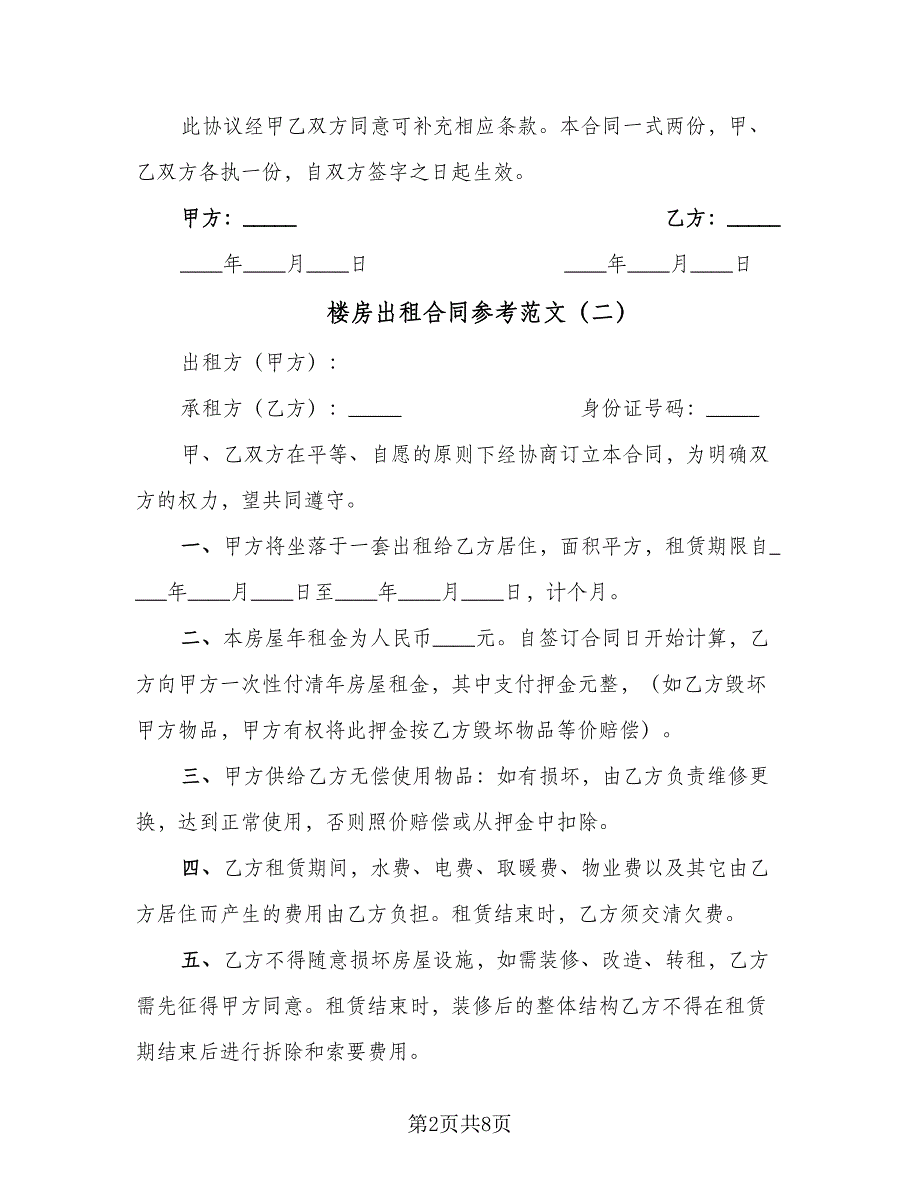 此协议经甲乙双方同意可补充相应条款。本合同一式两份，甲、
乙双方各执一份，自双方签字之日起生效。
甲方：_____ 乙方：_____
____年____月____日 ____年____月____日
楼房出租合同参考范文（二）
出租方（甲方）：
承租方（乙方）：_____ 身份证号码：_____
甲、乙双方在平等、自愿的原则下经协商订立本合同，为明确双
方的权力，望共同遵守。
一、甲方将坐落于一套出租给乙方居住，面积平方，租赁期限自_
___年____月____日至____年____月____日，计个月。
二、本房屋年租金为人民币____元。自签订合同日开始计算，乙
方向甲方一次性付清年房屋租金，其中支付押金元整，（如乙方毁坏
甲方物品，甲方有权将此押金按乙方毁坏物品等价赔偿）。
三、甲方供给乙方无偿使用物品：如有损坏，由乙方负责维修更
换，达到正常使用，否则照价赔偿或从押金中扣除。
四、乙方租赁期间，水费、电费、取暖费、物业费以及其它由乙
方居住而产生的费用由乙方负担。租赁结束时，乙方须交清欠费。
五、乙方不得随意损坏房屋设施，如需装修、改造、转租，乙方
需先征得甲方同意。租赁结束时，装修后的整体结构乙方不得在租赁
期结束后进行拆除和索要费用。
第2页共8页